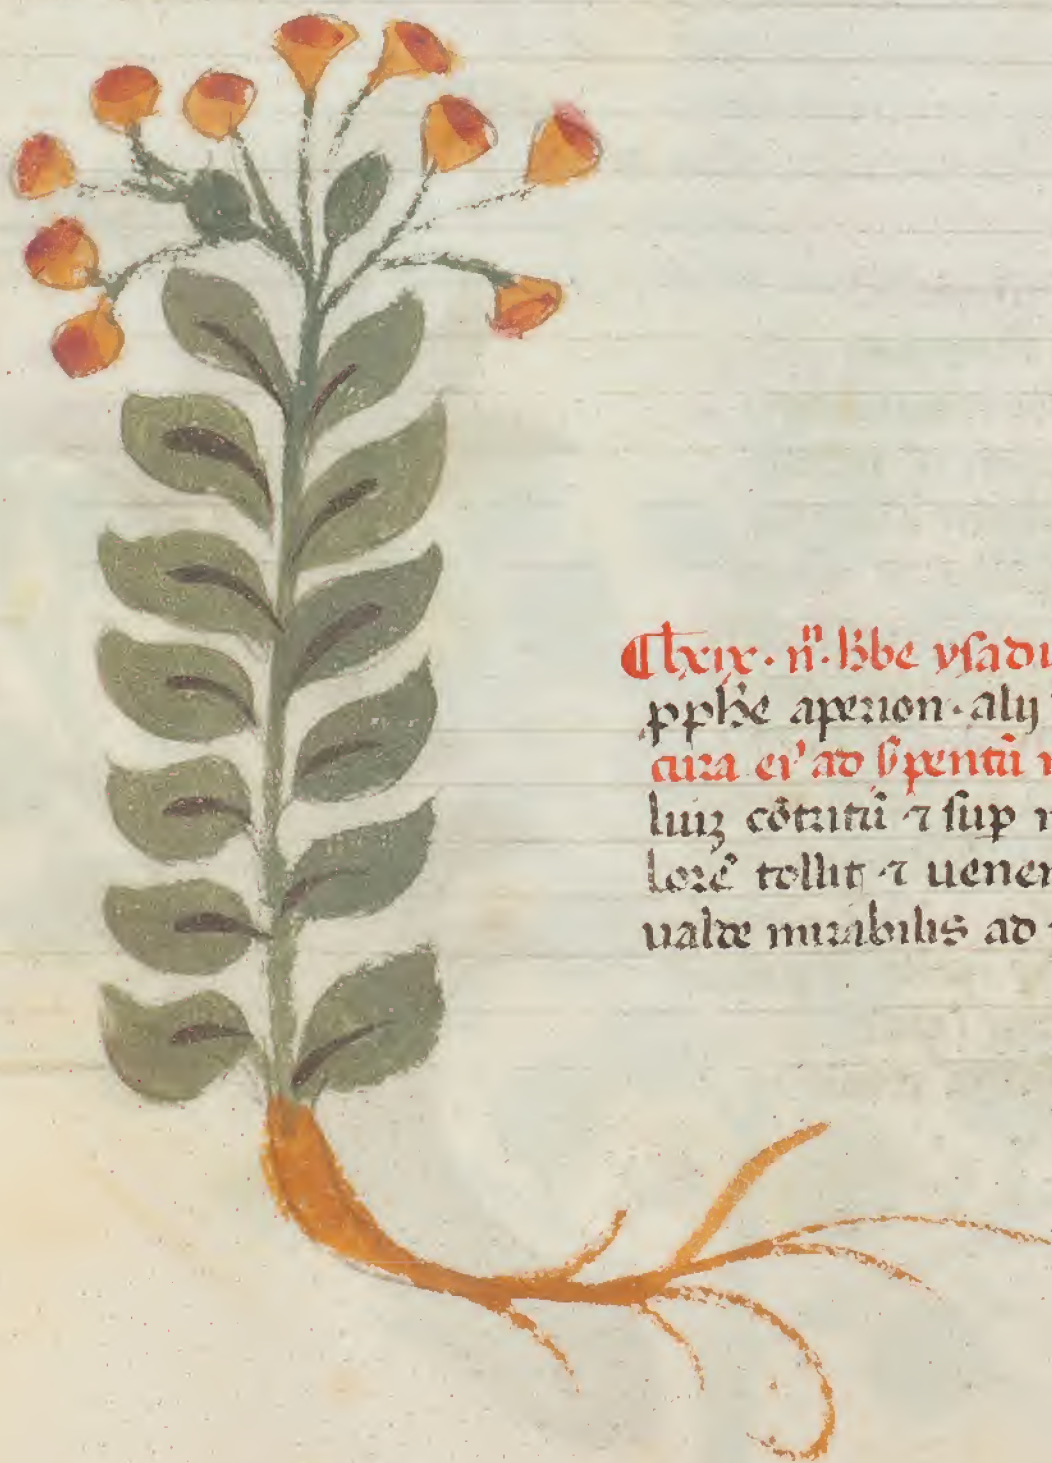 lxix. nͫ. hͬbe ysadi
ꝓpħe aperion. alij
cura eiꝰ ad s̓pentū
luiꝫ cōtritū ⁊ sup
lorē tollit ⁊ uenen
ualde mirabilis ad